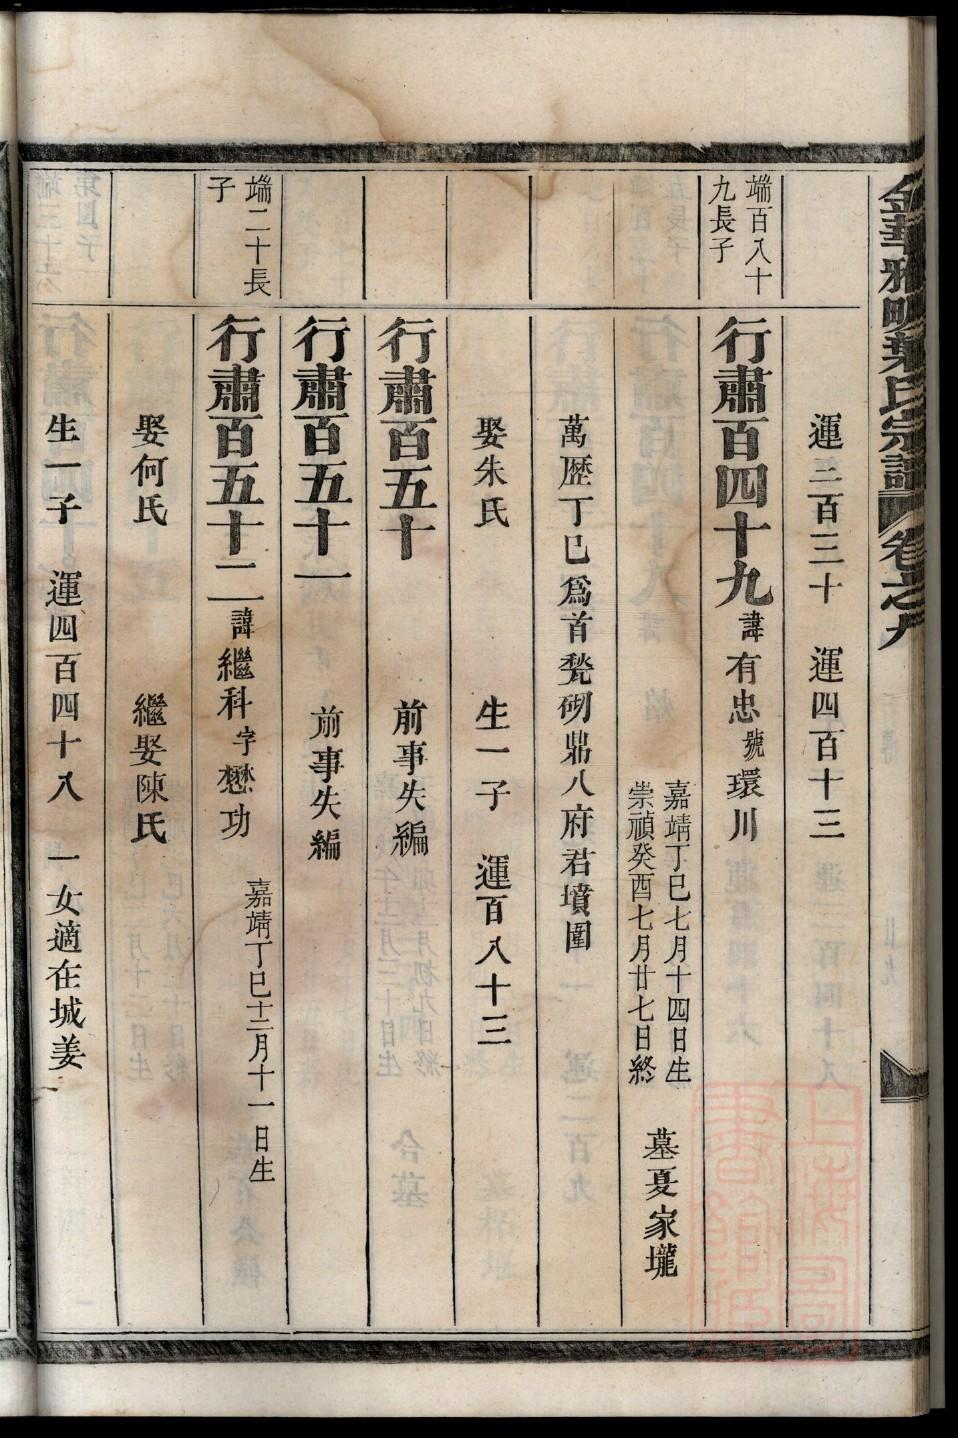 金華雅畈葉氏宗譜 卷之九
運三百三十 運四百十三
端百八十九長子
行肅百四十九 諱有忠 號環川
嘉靖丁巳七月十四日生
崇禎癸酉七月廿七日終
墓夏家壠
萬歷丁巳爲首甃砌鼎八府君墳圍
娶朱氏 生一子 運百八十三
行肅百五十 前事失編
行肅百五十一 前事失編
端二十長子
行肅百五十二 諱繼科 字懋功 嘉靖丁巳十二月十一日生
娶何氏 繼娶陳氏
生一子 運四百四十八 一女適在城姜
上海圖書館藏